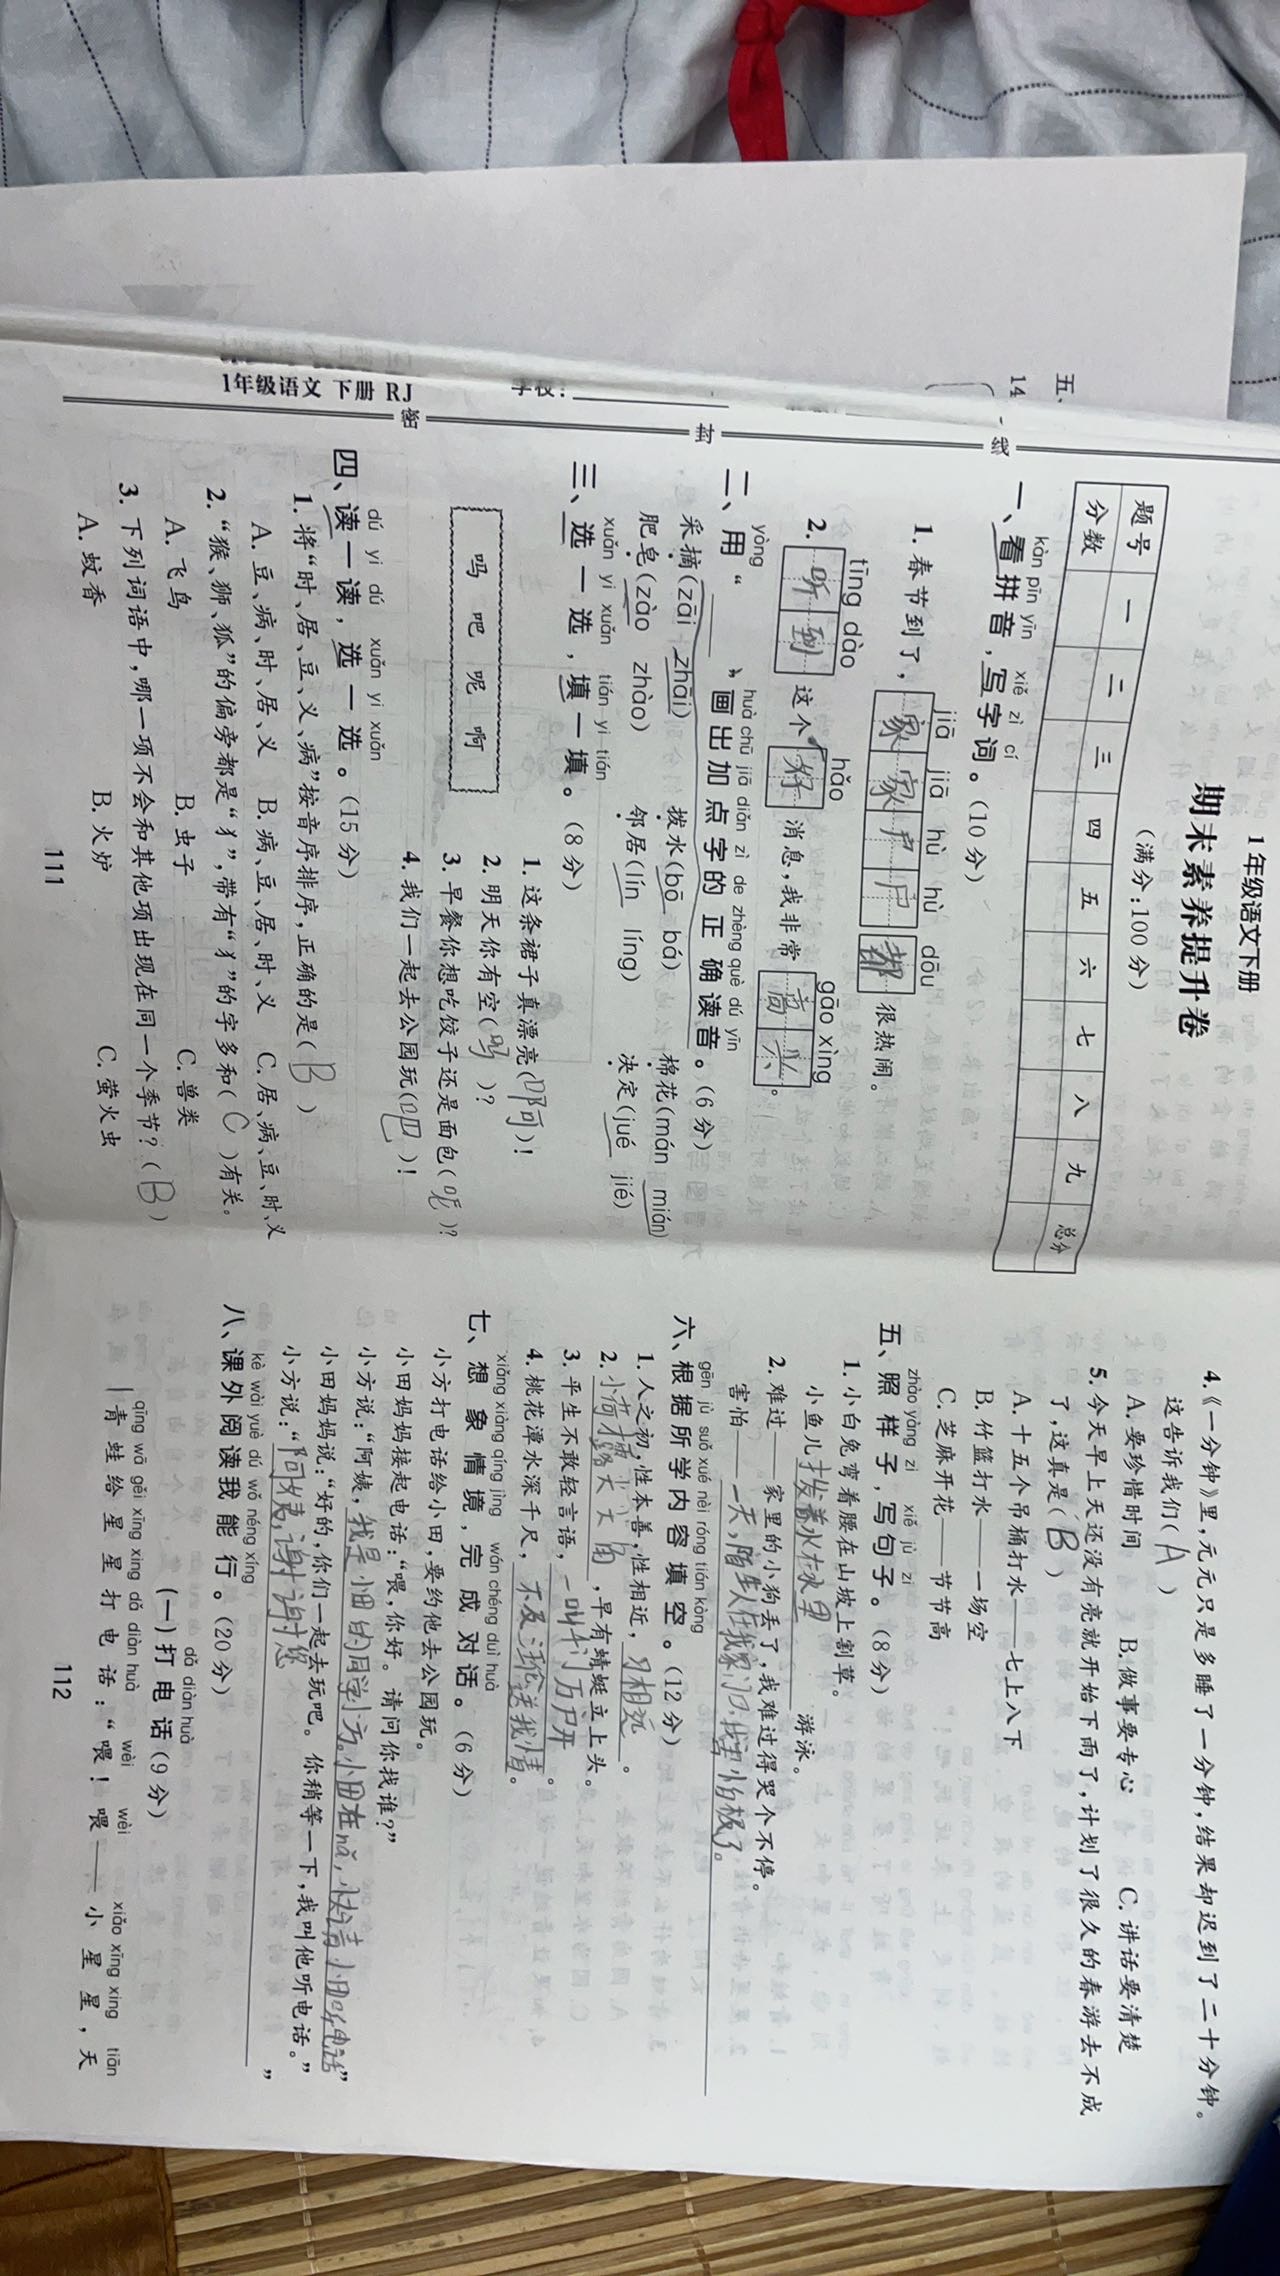 1年级语文 下册 RJ
学校：
线
封
密
五、
14
1年级语文下册
期末素养提升卷
（满分：100分）
题号 一 二 三 四 五 六 七 八 九 总分
分数
kàn pīn yīn xiě zì cí
一、看拼音，写字词。（10分）
jiā jiā hù hù dōu
1. 春节到了，家家户户都很热闹。
tīng dào hǎo gāo xìng
2. 听到这个好消息，我非常高兴。
yòng huà chū jiā diǎn zì de zhèng què dú yīn
二、用“____”画出加点字的正确读音。（6分）
采摘（zāi zhāi） 拨水（bō bá） 棉花（mán mián）
肥皂（zào zhào） 邻居（lín líng） 决定（jué jié）
xuǎn yi xuǎn tián yi tián
三、选一选，填一填。（8分）
吗 吧 呢 啊
1. 这条裙子真漂亮（啊）！
2. 明天你有空（吗）？
3. 早餐你想吃饺子还是面包（呢）？
4. 我们一起去公园玩（吧）！
dú yi dú xuǎn yi xuǎn
四、读一读，选一选。（15分）
1. 将“时、居、豆、义、病”按音序排序，正确的是（B）
A. 豆、病、时、居、义 B. 病、豆、居、时、义 C. 居、病、豆、时、义
2. “猴、狮、狐”的偏旁都是“犭”，带有“犭”的字多和（C）有关。
A. 飞鸟 B. 虫子 C. 兽类
3. 下列词语中，哪一项不会和其他项出现在同一个季节？（B）
A. 蚊香 B. 火炉 C. 萤火虫
111
4.《一分钟》里，元元只是多睡了一分钟，结果却迟到了二十分钟。
这告诉我们（A）
A. 要珍惜时间 B. 做事要专心 C. 讲话要清楚
5. 今天早上天还没有亮就开始下雨了，计划了很久的春游去不成
了，这真是（B）
A. 十五个吊桶打水——七上八下
B. 竹篮打水——一场空
C. 芝麻开花——节节高
zhào yàng zi xiě jù zi
五、照样子，写句子。（8分）
1. 小白兔弯着腰在山坡上割草。
小鱼儿拨着水在水里游泳。
2. 难过——家里的小狗丢了，我难过得哭个不停。
害怕——一天，陌生人在我家门口，我害怕极了。
gēn jù suǒ xué nèi róng tián kòng
六、根据所学内容填空。（12分）
1. 人之初，性本善，性相近，习相远。
2. 小荷才露尖尖角，早有蜻蜓立上头。
3. 平生不敢轻言语，一叫千门万户开。
4. 桃花潭水深千尺，不及汪伦送我情。
xiǎng xiàng qíng jìng wán chéng duì huà
七、想象情境，完成对话。（6分）
小方打电话给小田，要约他去公园玩。
小田妈妈接起电话：“喂，你好。请问你找谁？”
小方说：“阿姨，我是小田的同学小方。小田在nǎ，快请小田听电话”
小田妈妈说：“好的，你们一起去玩吧。你稍等一下，我叫他听电话。”
小方说：“阿姨，谢谢您”
kè wài yuè dú wǒ néng xíng
八、课外阅读我能行。（20分）
dǎ diàn huà
（一）打电话（9分）
qīng wā gěi xīng xing dǎ diàn huà wèi wèi xiǎo xīng xing tiān
青蛙给星星打电话：“喂！喂——小星星，天
112